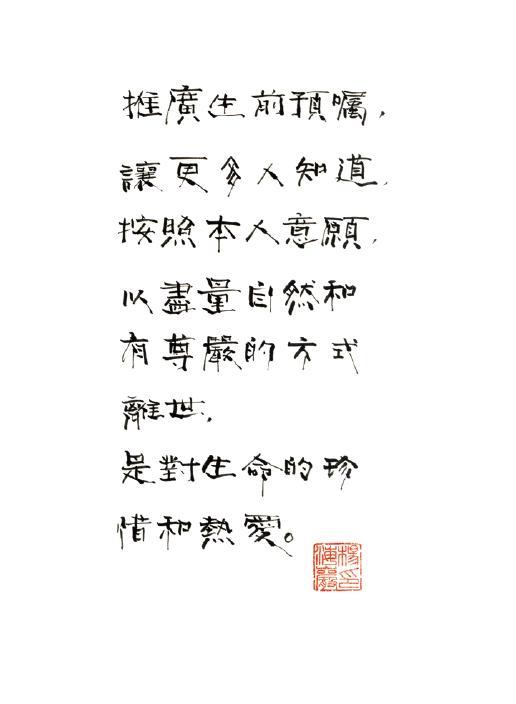 推廣生前預囑，
讓更多人知道，
按照本人意願，
以盡量自然和
有尊嚴的方式
離世，
是對生命的珍
惜和熱愛。